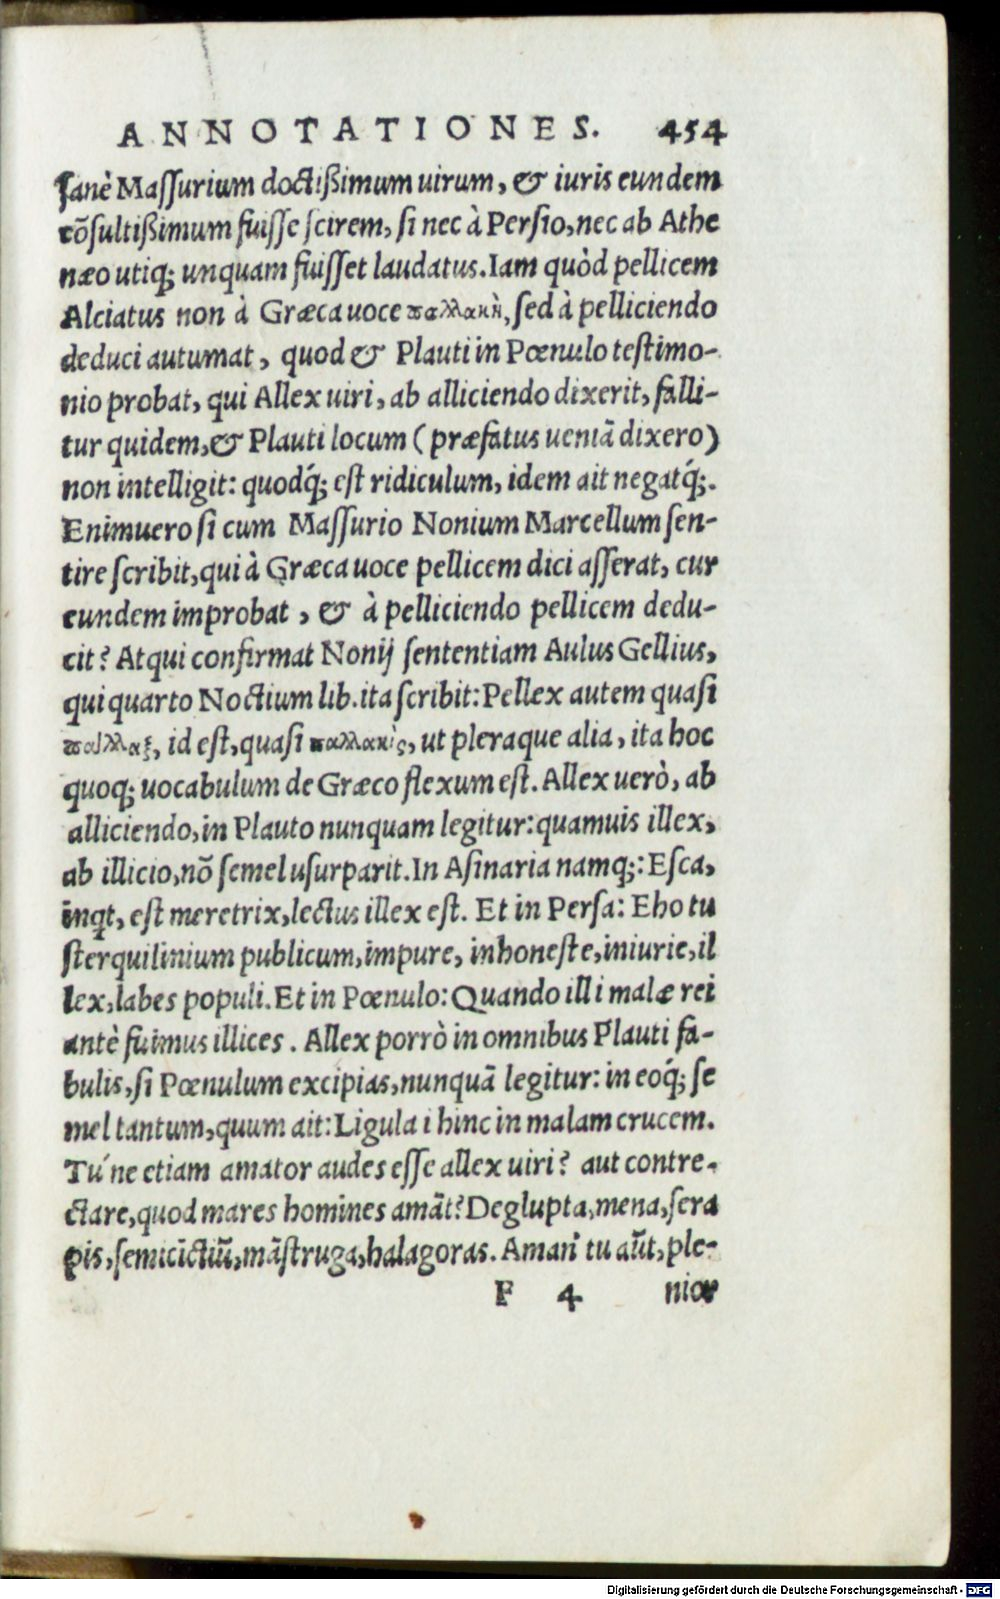 ANNOTATIONES. 454
sanè Massurium doctißimum uirum, & iuris eundem
cõsultißimum fuisse scirem, si nec à Persio, nec ab Athe
næo utiq; unquam fuisset laudatus. Iam quòd pellicem
Alciatus non à Græca uoce παλλακὴ, sed à pelliciendo
deduci autumat, quod & Plauti in Pœnulo testimo-
nio probat, qui Allex uiri, ab alliciendo dixerit, falli-
tur quidem, & Plauti locum (præfatus ueniã dixero)
non intelligit: quodq́; est ridiculum, idem ait negatq́;.
Enimuero si cum Massurio Nonium Marcellum sen-
tire scribit, qui à Græca uoce pellicem dici asserat, cur
eundem improbat, & à pelliciendo pellicem dedu-
cit? Atqui confirmat Nonij sententiam Aulus Gellius,
qui quarto Noctium lib. ita scribit: Pellex autem quasi
πάλλαξ, id est, quasi παλλακὶς, ut pleraque alia, ita hoc
quoq; uocabulum de Græco flexum est. Allex uerò, ab
alliciendo, in Plauto nunquam legitur: quamuis illex,
ab illicio, nõ semel usurparit. In Asinaria namq;: Esca,
inqt, est meretrix, lectus illex est. Et in Persa: Eho tu
sterquilinium publicum, impure, inhoneste, iniurie, il
lex, labes populi. Et in Pœnulo: Quando illi malæ rei
antè fuimus illices. Allex porrò in omnibus Plauti fa-
bulis, si Pœnulum excipias, nunquã legitur: in eoq́; se
mel tantum, quum ait: Ligula i hinc in malam crucem.
Tú ne etiam amator audes esse allex uiri? aut contre-
ctare, quod mares homines amãt? Deglupta, mena, sera
pis, semicĩctiũ, mãstruga, halagoras. Amari tu aũt, ple-
F 4 nior
Digitalisierung gefördert durch die Deutsche Forschungsgemeinschaft - DFG